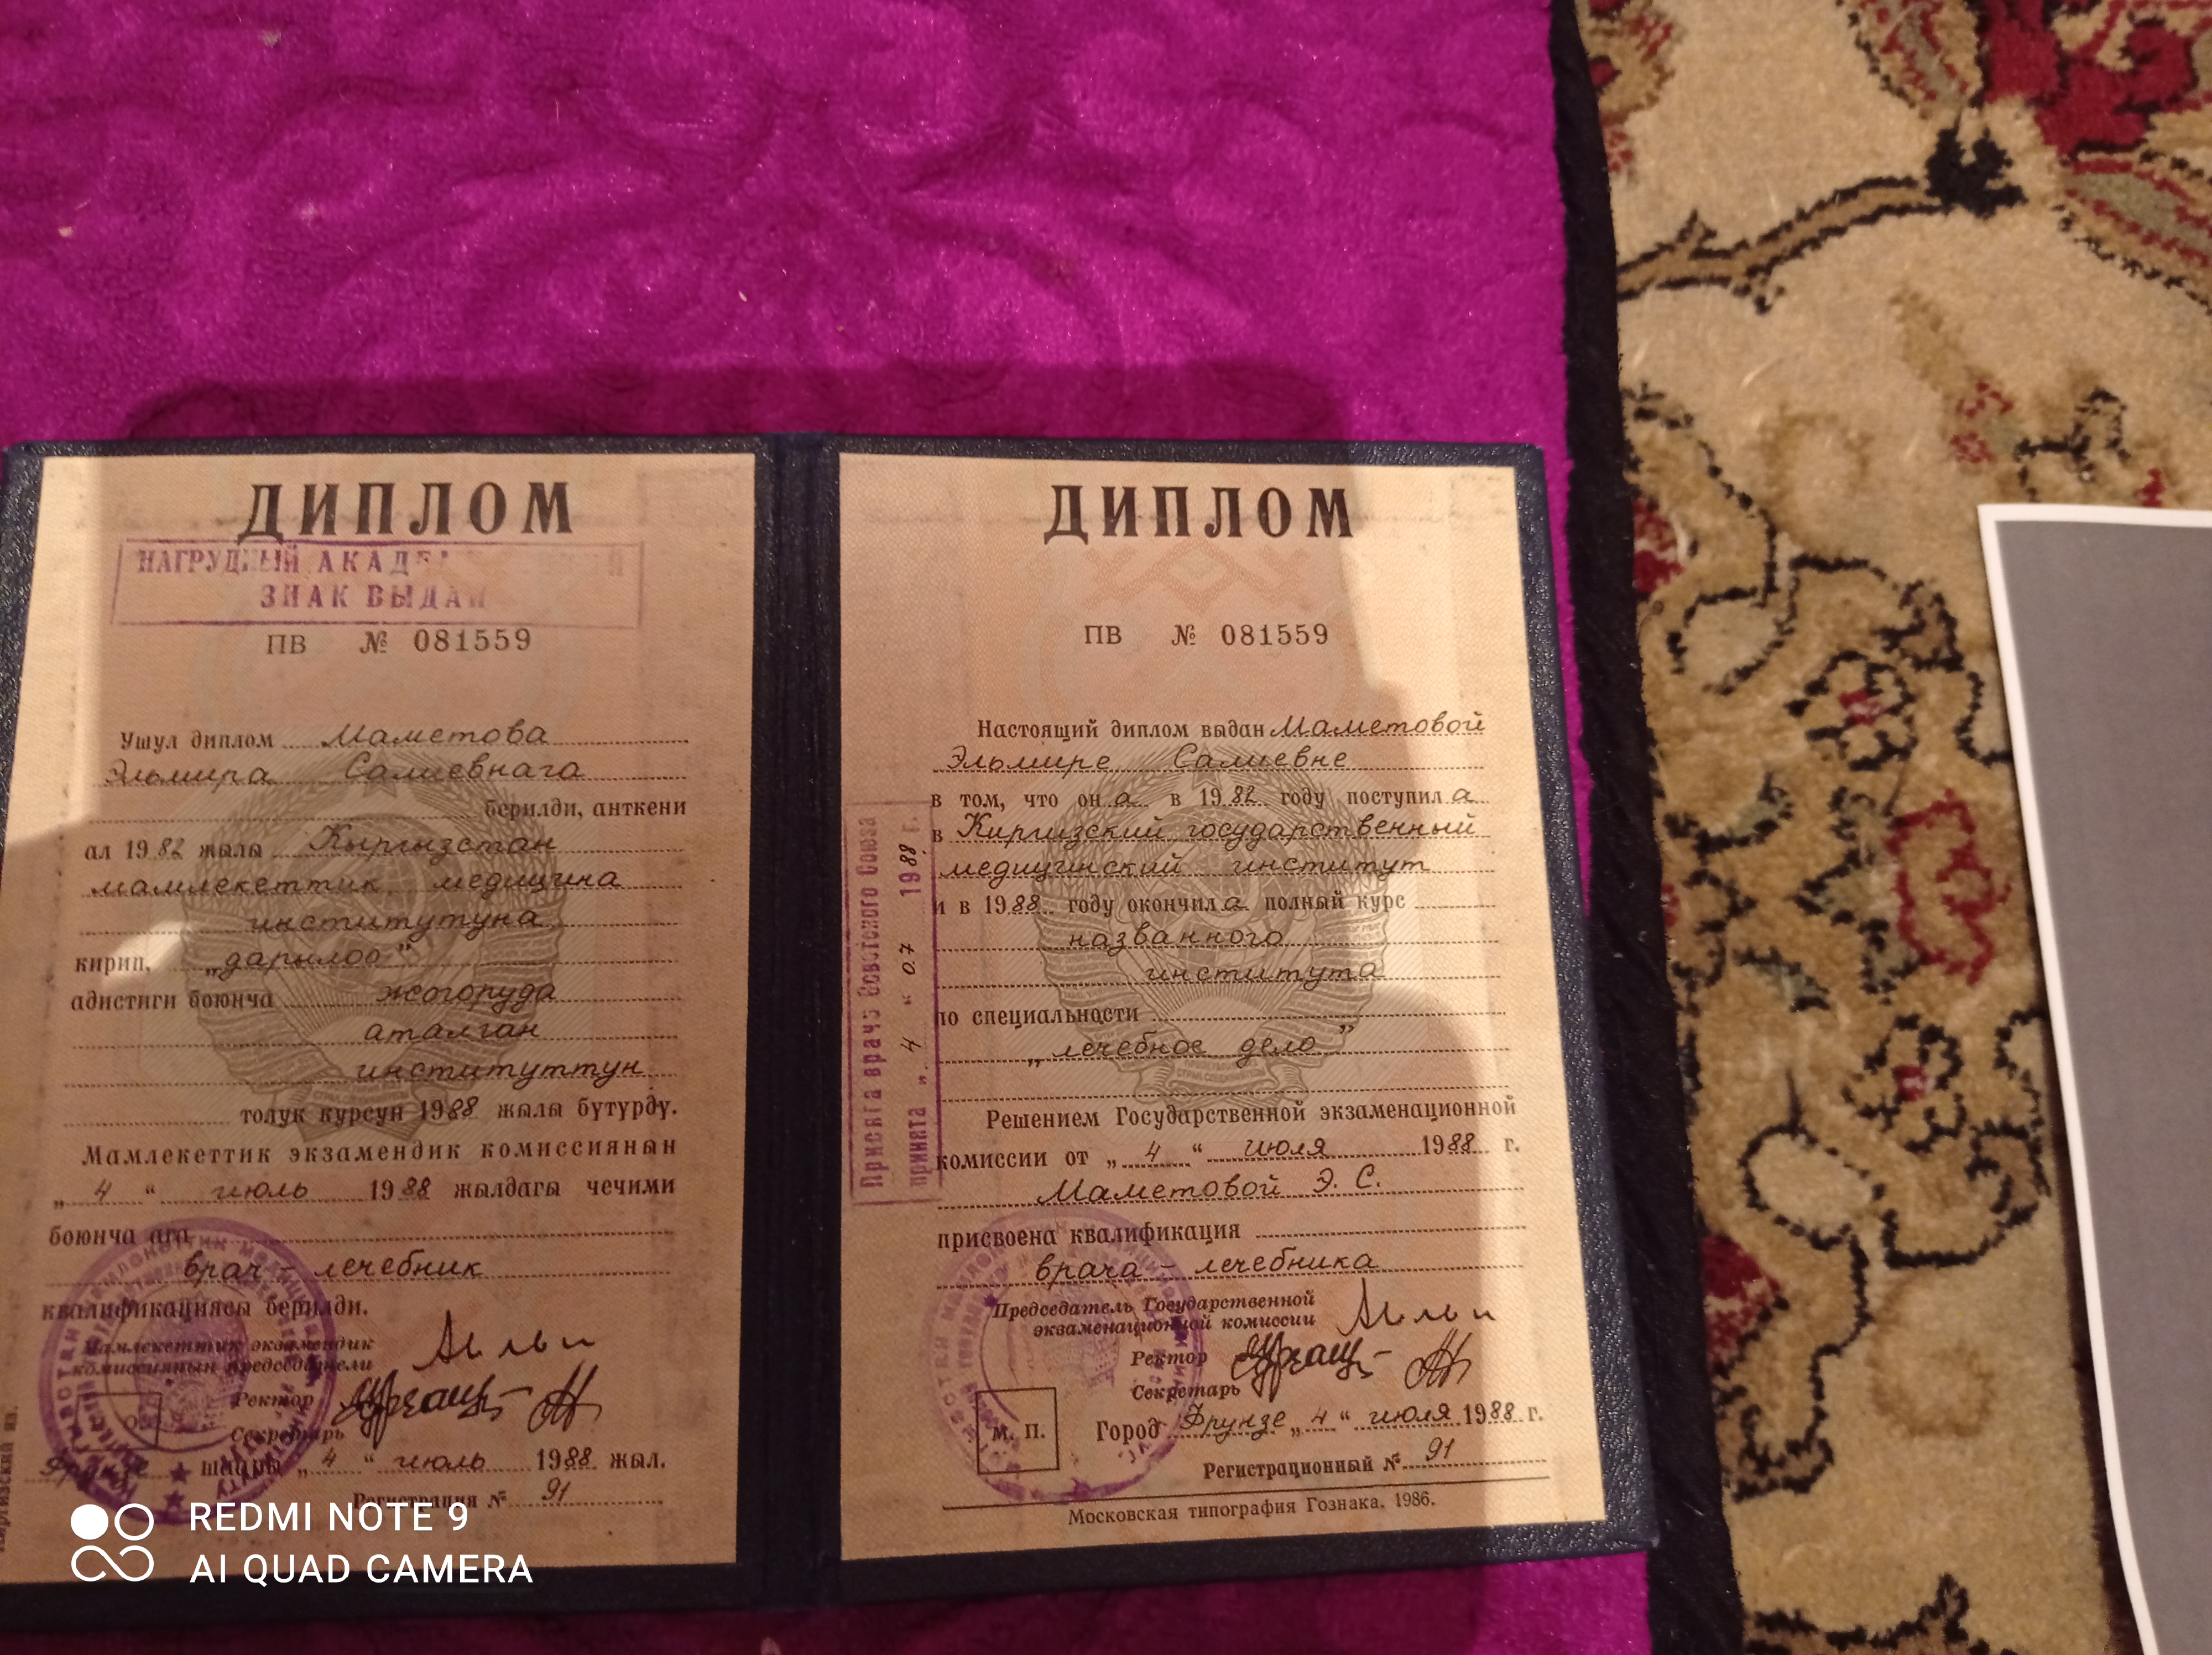 ДИПЛОМ
НАГРУДНЫЙ
ЗНАК ВЫДАН
ПВ № 081559
Ушул диплом Маметова
Эльмира Салиевнага
берилди, анткени
ал 1982 жылы Кыргызстан
мамлекеттик медицина
институтуна
кирип, „дарылоо"
адистиги боюнча жогоруда
аталган
институттун
толук курсун 1988 жылы бүтүрдү.
Мамлекеттик экзамендик комиссиянын
„4" июль 1988 жылдагы чечими
боюнча ага
врач - лечебник
квалификациясы берилди.
Мамлекеттик экзамендик
комиссиянын председатели
Ректор
Секретарь
Фрунзе шаары „4" июль 1988 жыл.
Регистрация № 91
ДИПЛОМ
ПВ № 081559
Настоящий диплом выдан Маметовой
Эльмире Салиевне
в том, что она в 1982 году поступила
в Киргизский государственный
медицинский институт
и в 1988 году окончила полный курс
названного
института
по специальности
„лечебное дело"
Решением Государственной экзаменационной
комиссии от „4" июля 1988 г.
Маметовой Э. С.
присвоена квалификация
врача - лечебника
Председатель Государственной
экзаменационной комиссии
Ректор
Секретарь
М. П.
Город Фрунзе „4" июля 1988 г.
Регистрационный № 91
Московская типография Гознака. 1986.
Присяга врача Советского Союза
принята „4" 07 1988 г.
REDMI NOTE 9
AI QUAD CAMERA